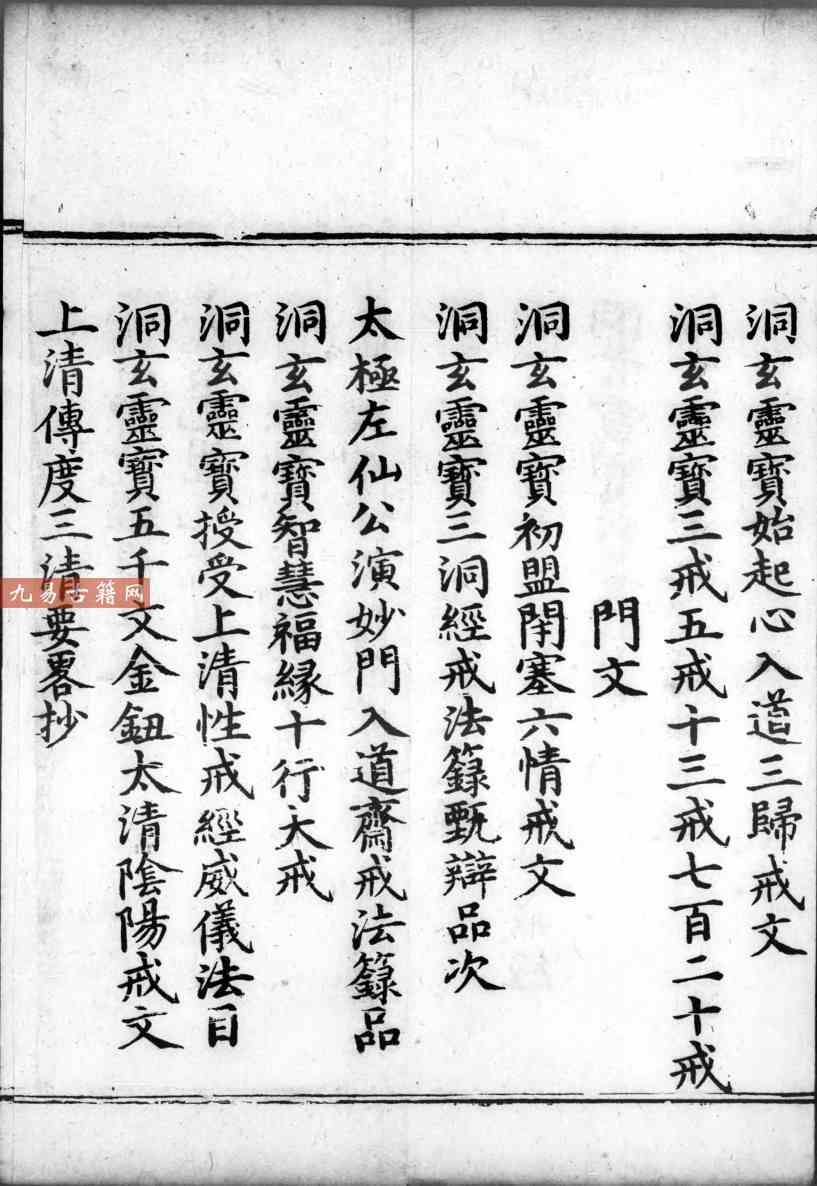 洞玄靈寶始起心入道三歸戒文
洞玄靈寶三戒五戒十三戒七百二十戒
門文
洞玄靈寶初盟閉塞六情戒文
洞玄靈寶三洞經戒法籙甄辯品次
太極左仙公演妙門入道齋戒法籙品
洞玄靈寶智慧福緣十行大戒
洞玄靈寶授受上清性戒經威儀法目
洞玄靈寶五千文金鈕太清陰陽戒文
上清傳度三清要畧抄
九易古籍网